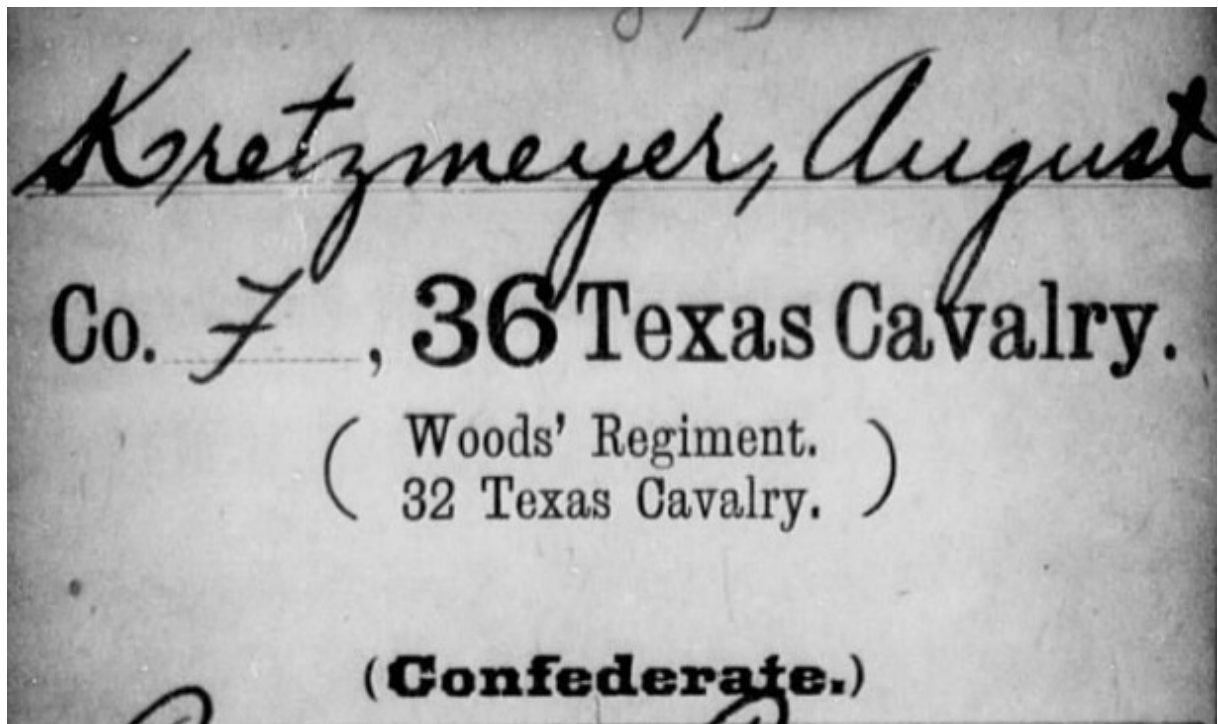 Kretzmeyer, August
Co. F, 36 Texas Cavalry.
( Woods' Regiment.
32 Texas Cavalry. )
(Confederate.)